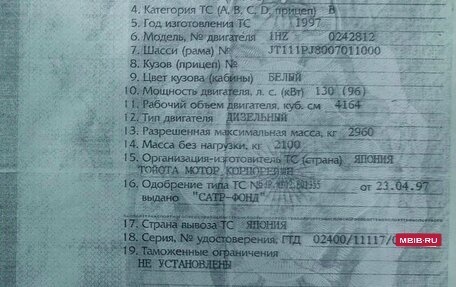 4. Категория ТС (А, В, С, D, прицеп) В
5. Год изготовления ТС 1997
6. Модель, № двигателя 1HZ 0242812
7. Шасси (рама) № JT111PJ8007011000
8. Кузов (прицеп) №
9. Цвет кузова (кабины) БЕЛЫЙ
10. Мощность двигателя, л. с. (кВт) 130 (96)
11. Рабочий объем двигателя, куб. см 4164
12. Тип двигателя ДИЗЕЛЬНЫЙ
13. Разрешенная максимальная масса, кг 2960
14. Масса без нагрузки, кг 2100
15. Организация-изготовитель ТС (страна) ЯПОНИЯ
ТОЙОТА МОТОР КОРПОРЕЙШН
16. Одобрение типа ТС № от 23.04.97
выдано "САТР-ФОНД"
17. Страна вывоза ТС ЯПОНИЯ
18. Серия, № удостоверения, ГТД 02400/11117/
MBIB.RU
19. Таможенные ограничения
НЕ УСТАНОВЛЕНЫ